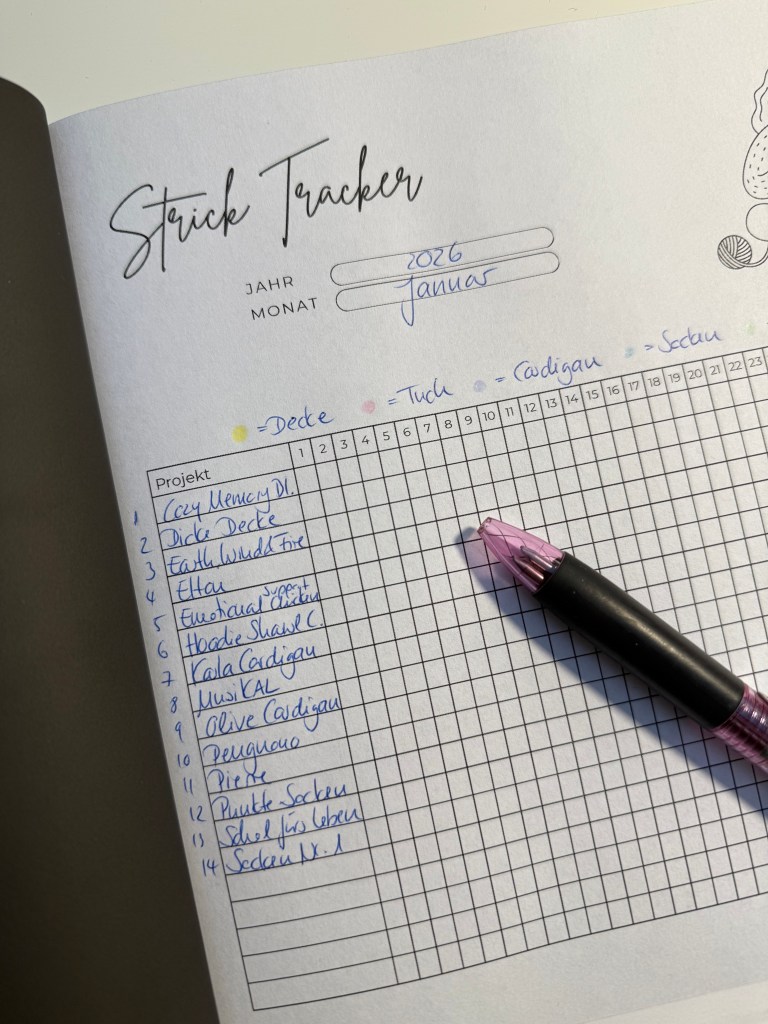 Strick Tracker
JAHR 2026
MONAT Januar
= Decke = Tuch = Cardigan = Socken
Projekt 1 2 3 4 5 6 7 8 9 10 11 12 13 14 15 16 17 18 19 20 21 22 23
1 Cozy Memory Bl.
2 Dicke Decke
3 Earth, Wind & Fire
4 Elton
5 Emotional Support Chicken
6 Hoodie Shawl C.
7 Karla Cardigan
8 MusiKAL
9 Olive Cardigan
10 Penguono
11 Pierre
12 Punkte Socken
13 Schal fürs Leben
14 Socken Nr. 1